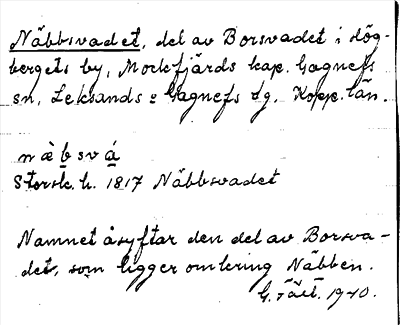 Näbbsvadet, del av Borsvadet i Hög-
bergets by, Mockfjärds kap. Gagnefs
sn, Leksands o Gagnefs tg. Kopp. län.
n ä̀ b s v á
Storsk. h. 1817 Näbbsvadet
Namnet åsyftar den del av Borsva-
det, som ligger omkring Näbben.
G. Tält. 1940.